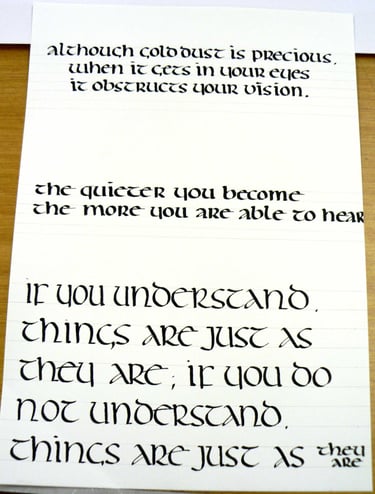 although gold dust is precious,
when it gets in your eyes
it obstructs your vision.
the quieter you become
the more you are able to hear
if you understand,
things are just as
they are; if you do
not understand,
things are just as they are